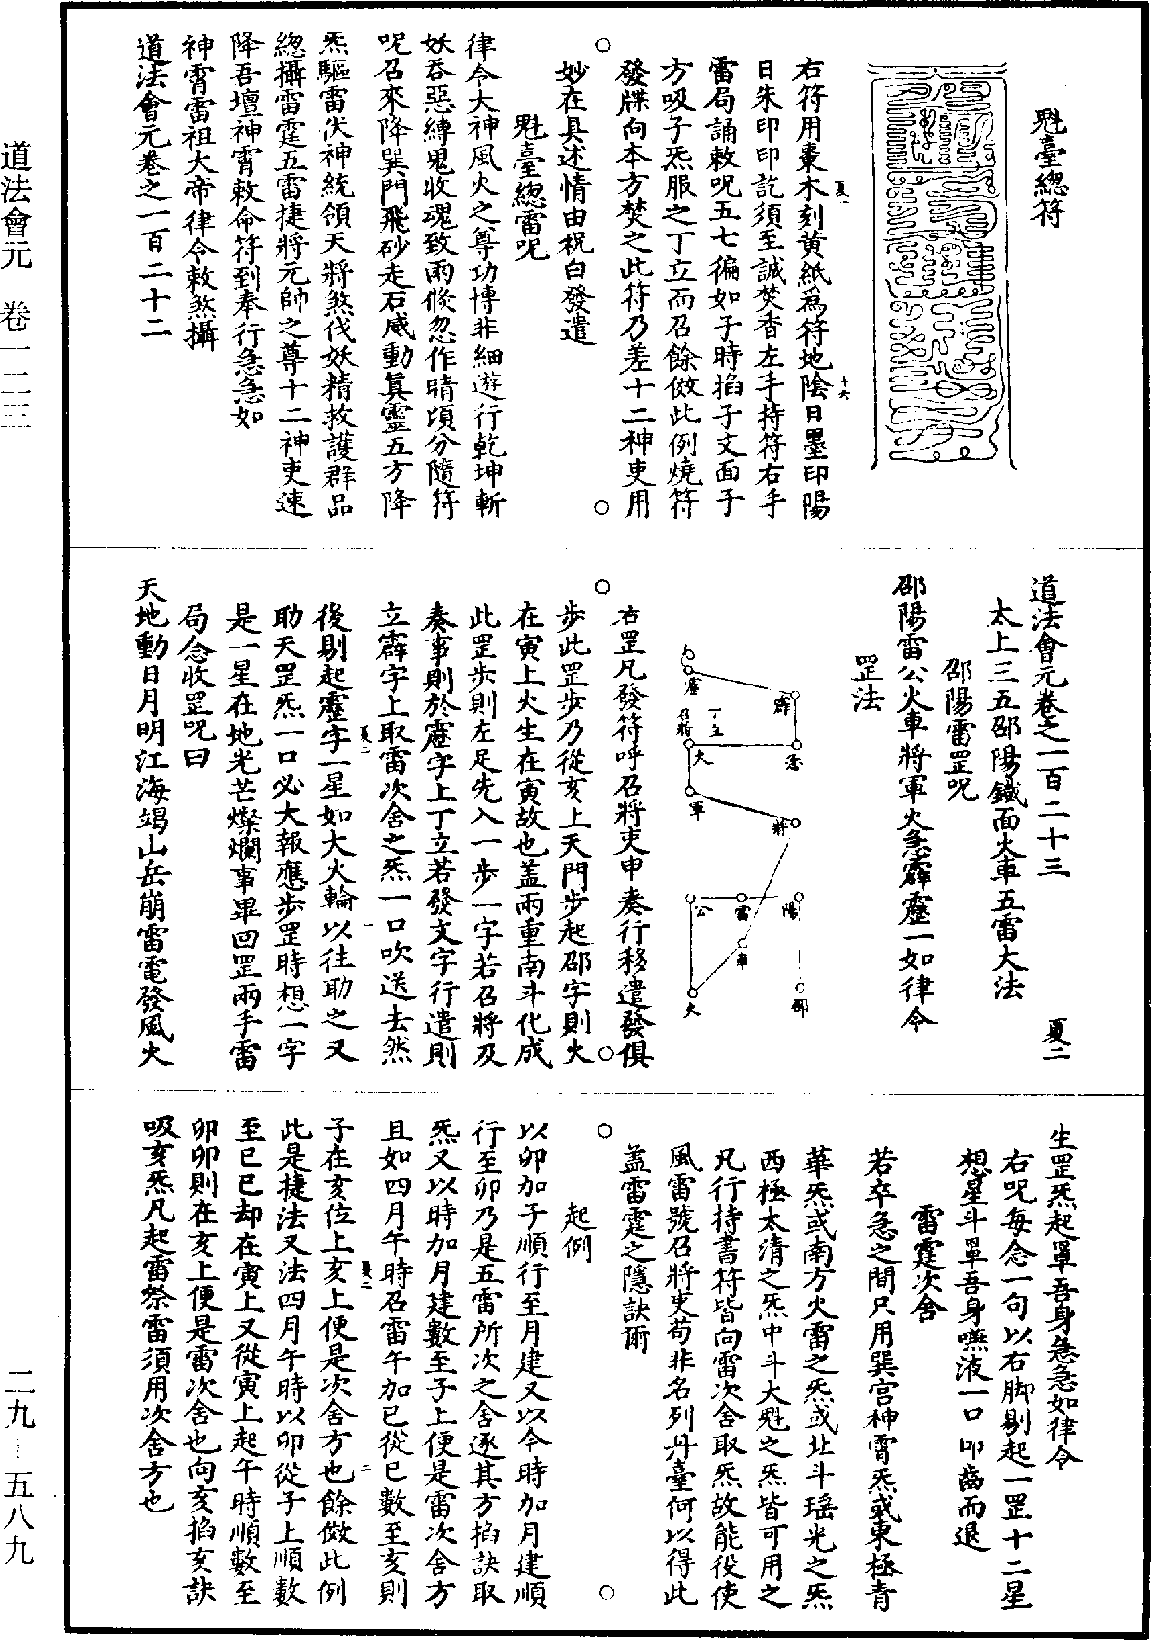 魁臺總符
右符用棗木刻黄紙爲符地陰日墨印陽
日朱印印訖須至誠焚香左手持符右手
雷局誦敕呪五七徧如子時掐子文面子
方吸子炁服之丁立而召餘倣此例燒符
發牒向本方焚之此符乃差十二神吏用
妙在具述情由祝白發遣
魁臺總雷呪
律令大神風火之尊功博非細遊行乾坤斬
妖吞惡縛鬼收魂致雨倐忽作晴頃分隨符
呪召來降巽門飛砂走石威動真靈五方降
炁驅雷伏神統領天將煞伐妖精救護群品
總攝雷霆五雷捷將元帥之尊十二神吏速
降吾壇神霄敕命符到奉行急急如
神霄雷祖大帝律令敕煞攝
道法會元卷之一百二十二
道法會元卷之一百二十三 夏二
太上三五邵陽鐵面火車五雷大法
邵陽雷罡呪
邵陽雷公火車將軍火急霹靂一如律令
罡法
靂 霹
一丁立
召將
火 急
軍 將
公 雷 陽
車
火 邵
右罡凡發符呼召將吏申奏行移遣發俱
步此罡步乃從亥上天門步起邵字則火
在寅上火生在寅故也盖兩重南斗化成
此罡步則左足先入一步一字若召將及
奏事則於靂字上丁立若發文字行遣則
立霹字上取雷次舍之炁一口吹送去然
後剔起靂字一星如大火輪以往助之又
助天罡炁一口必大報應步罡時想一字
是一星在地光芒燦爛事畢回罡兩手雷
局念收罡呪曰
天地動日月明江海竭山岳崩雷電發風火
生罡炁起罩吾身急急如律令
右呪每念一句以右脚剔起一罡十二星
想星斗罩吾身嚥液一口叩齒而退
雷霆次舍
若卒急之間只用巽宫神霄炁或東極青
華炁或南方火雷之炁或北斗瑶光之炁
西極太清之炁中斗大魁之炁皆可用之
凡行持書符皆向雷次舍取炁故能役使
風雷號召將吏苟非名列丹臺何以得此
蓋雷霆之隱訣爾
起例
以卯加子順行至月建又以今時加月建順
行至卯乃是五雷所次之舍逐其方掐訣取
炁又以時加月建數至子上便是雷次舍方
且如四月午時召雷午加巳從巳數至亥則
子在亥位上亥上便是次舍方也餘倣此例
此是捷法又法四月午時以卯從子上順數
至巳巳却在寅上又從寅上起午時順數至
卯卯則在亥上便是雷次舍也向亥掐亥訣
吸亥炁凡起雷祭雷須用次舍方也
道法會元 卷一二三
二九—五八九